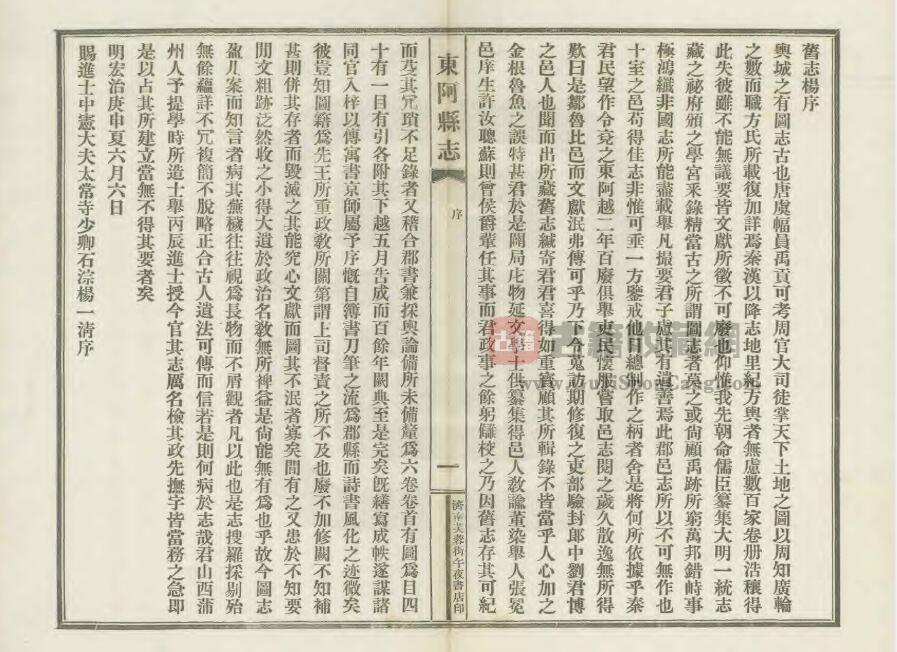 舊志楊序
輿城之有圖志古也唐虞幅員禹貢可考周官大司徒掌天下土地之圖以周知廣輪
之數而職方氏所載復加詳焉秦漢以降志地里紀方輿者無慮數百家卷册浩穰得
此失彼雖不能無議要皆文獻所徵不可廢也仰惟我先朝命儒臣纂集大明一統志
藏之祕府頒之學宮采錄精當古之所謂圖志者莫之或尙顧禹跡所窮萬邦錯峙事
極鴻纖非國志所能盡載舉凡撮要君子慮其有遺善焉此郡邑志所以不可無作也
十室之邑苟得佳志非惟可垂一方鑒戒他日總制作之柄者舍是將何所依據乎秦
君民望作令兗之東阿越二年百廢俱舉吏民懷服嘗取邑志閱之歲久散逸無所得
歎曰是鄒魯比邑而文獻泯弗傳可乎乃下令蒐訪期修復之吏部驗封郎中劉君博
之邑人也聞而出所藏舊志緘寄君君喜得如重寶顧其所輯錄不皆當乎人心加之
金根魯魚之誤特甚君於是闢局庀物延文學士俱纂集得邑人敎諭董染舉人張冕
邑庠生許汝聰蘇則曾侯爵輩任其事而君政事之餘躬讎校之乃因舊志存其可紀
東阿縣志
序
一
濟南芙蓉街午夜書店印
而芟其冗瑣不足錄者又稽合郡書兼採輿論備所未備釐爲六卷卷首有圖爲目四
十有一目有引各附其下越五月告成而百餘年闕典至是完矣旣繕寫成帙遂謀諸
同官入梓以傳寓書京師屬予序慨自簿書刀筆之流爲郡縣而詩書風化之迹微矣
彼豈知圖籍爲先王所重政敎所關第謂上司督責之所不及也廢不加修闕不知補
甚則併其存者而毀滅之其能究心文獻而圖其不泯者寡矣間有之又患於不知要
閒文粗跡泛然收之小得大遺於政治名敎無所裨益是尙能無有爲也乎故今圖志
盈几案而知言者病其蕪穢往往視爲長物而不屑觀者凡以此也是志搜羅採剔殆
無餘蘊詳不冗複簡不脫略正合古人遺法可傳而信若是則何病於志哉君山西蒲
州人予提學時所造士舉丙辰進士授今官其志厲名檢其政先撫字皆當務之急即
是以占其所建立當無不得其要者矣
明宏治庚申夏六月六日
賜進士中憲大夫太常寺少卿石淙楊一清序
古籍
古籍收藏網
www.GuJiShouCang.com